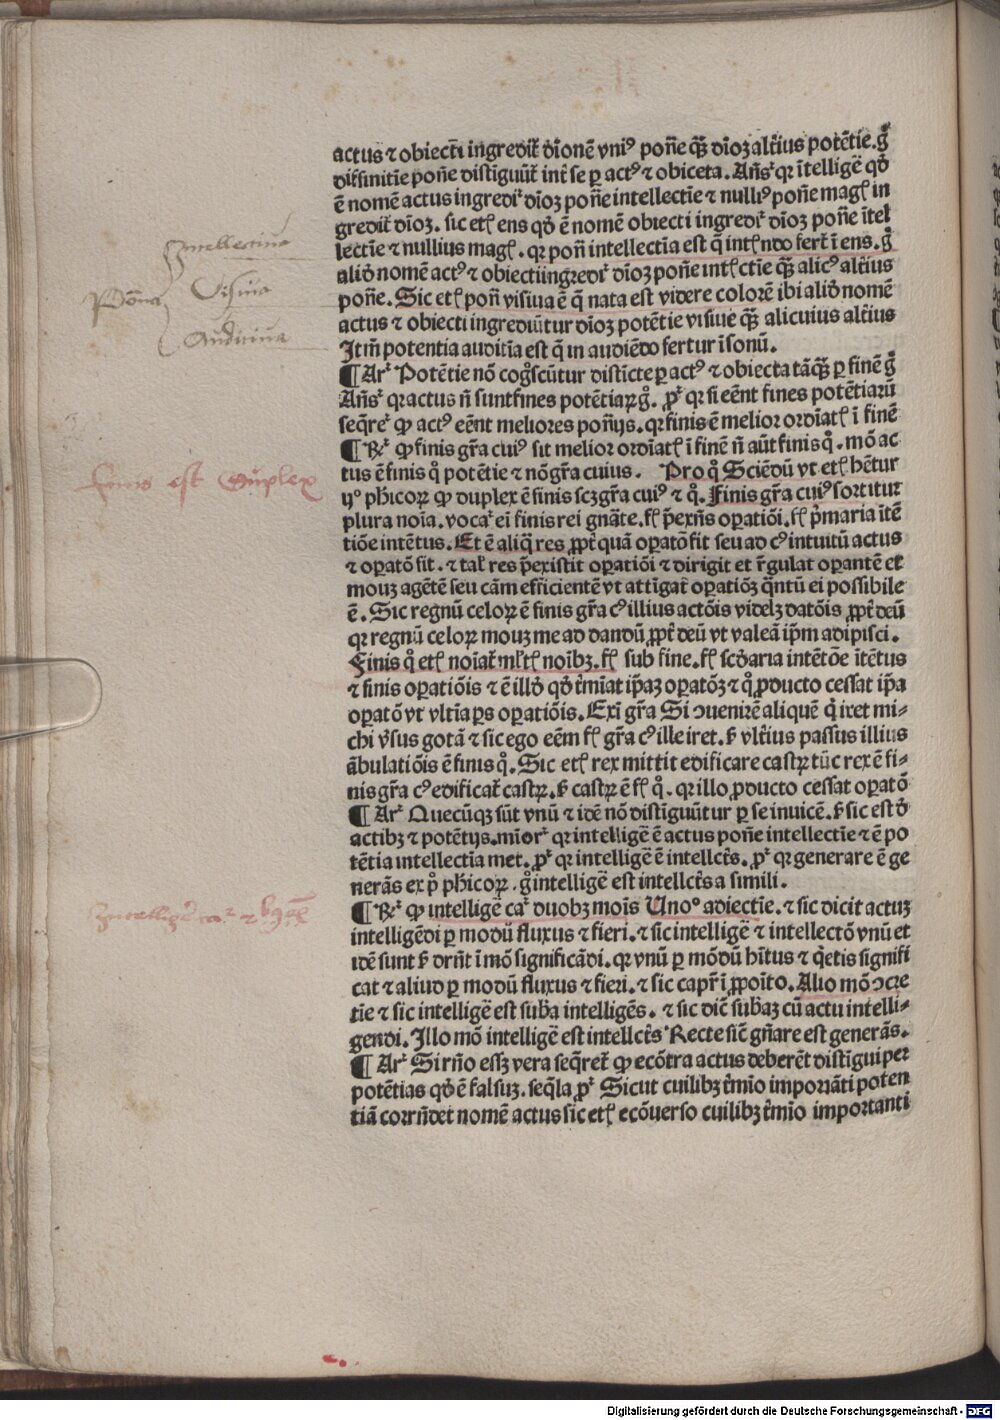 actus ⁊ obiecti ingredit᷑ diͥonē vni⁹ poñe qȝ̄ diͦoȝ alti᷑us potētie. gͦ
dif̄finitie poñe distīguūt᷑ int᷑ se p act⁹ ⁊ obiceta. Añs᷑ qꝛ ītelligē qd̄
ē nomē actus ingredi᷑ dīoȝ poñe intellectīe ⁊ nulli⁹ poñe magꝭ in
gredit᷑ dīoȝ. sic etꝭ ens qd̄ ē nomē obiecti ingredi᷑ dīoȝ poñe ītel
lectīe ⁊ nullius magꝭ. qꝛ poñ intellectīa est q̄ intꝭndo fert᷑ ī ens. gͦ
aliqd̄ nomē act⁹ ⁊ obiecti ingredi᷑ dīoȝ poñe intꝭctīe qȝ̄ alic⁹ alti᷑us
poñe. Sic etꝭ poñ visiua ē q̄ nata est videre colorē ibi aliqd̄ nomē
actus ⁊ obiecti ingrediūtur dīoȝ potētie visiue qȝ̄ alicuius alti᷑us
Itm̄ potentia auditīa est q̄ in audiēdo fertur ī sonū.
¶ Ar᷑ Potētie nō cogͦscūtur distīcte p act⁹ ⁊ obiecta tāqȝ̄ p finē gͦ
Añs᷑ qꝛ actus ñ sunt fines potētiaꝝ gͦ. pꝛ᷑ qꝛ si eēnt fines potētiarū
seqr̄e᷑ ꝙ act⁹ eēnt meliores poñijs. qꝛ finis ē melior ordīatꝭ ī finē
¶ Rꝛ᷑ ꝙ finis gr̄a cui⁹ sit melior ordīatꝭ ī finē ñ aūt finis qͦ. mō ac
tus ē finis qͦ potētie ⁊ nō gr̄a cuius. Pro qͦ Sciēdū vt etꝭ hētur
ijͦ phicoꝝ ꝙ duplex ē finis scȝ gr̄a cui⁹ ⁊ qͦ. Finis gr̄a cui⁹ sortitur
plura noīa. vocat᷑ ei finis rei gnāte. fꝭ p̄exñs opatiōi. fꝭ p̄maria ītē
tiōe intētus. Et ē aliq̄ res ꝓpt᷑ quā opatō fit seu ad c⁹ intuitū actus
⁊ opatō fit. ⁊ tal᷑ res p̄existit opatiōi ⁊ dirigit et r̄gulat opantē et
mouȝ agētē seu cām efficientē vt attīgat opatiōȝ qn̄tū ei possibile
ē. Sic regnū celoꝝ ē finis gr̄a c⁹ illius actōis videlȝ datōis ꝓpt᷑ deū
qꝛ regnū celoꝝ mouȝ me ad dandū ꝓpt᷑ deū vt valeā ip̄m adipisci.
Finis qͦ etꝭ noīat᷑ ml᷑tꝭ noībȝ. fꝭ sub fine. fꝭ scd̄aria intētōe ītētus
⁊ finis opatiōis ⁊ ē illd̄ qd̄ t᷑mīat ip̄aȝ opatōȝ ⁊ qͦ ꝓducto cessat ip̄a
opatō vt vltīa ps opatiōis. Exī gr̄a Si ↄuenirē aliquē qͥ iret mi⸗
chi v᷑sus gotā ⁊ sic ego eēm fꝭ gr̄a c⁹ ille iret. ẜ vlti᷑us passus illius
ābulatiōis ē finis qͦ. Sic etꝭ rex mittit edificare castrꝝ tūc rex ē fi⸗
nis gr̄a c⁹ edificat᷑ castrꝝ. ẜ castrꝝ ē fꝭ qͦ. qꝛ illo ꝓducto cessat opatō
¶ Ar᷑ Quecūqȝ sūt vnū ⁊ idē nō distīguūtur p se inuicē. ẜ sic est d̄
actibȝ ⁊ potētijs. mīor᷑ qꝛ intelligē ē actus poñe intellectīe ⁊ ē po
tētia intellectīa met. pꝛ᷑ qꝛ intelligē ē intellct᷑s. pꝛ᷑ qꝛ generare ē ge
nerās ex pͦ phicoꝝ. gͦ intelligē est intellct᷑s a simili.
¶ Rꝛ᷑ ꝙ intelligē ca᷑ duobȝ mois Unoͦ adiectīe. ⁊ sic dicit actuȝ
intelligēdi p modū fluxus ⁊ fieri. ⁊ sic intelligē ⁊ intellectō vnū et
idē sunt ẜ drn̄t ī mō significādi. qꝛ vnū p mōdū hītus ⁊ qͥetis signifi
cat ⁊ aliud p modū fluxus ⁊ fieri. ⁊ sic capr᷑ ī ꝓpoīto. Alio mō ↄcre
tīe ⁊ sic intelligē est suba intelligēs. ⁊ sic diē subaȝ cū actu intelli⸗
gendi. Illo mō intelligē est intellct᷑s Recte siē gn̄are est generās.
¶ Ar᷑ Si rn̄o essȝ vera seqr̄et᷑ ꝙ ecōtra actus deberēt distīgui per
potētias qd̄ ē falsuȝ. seq̄la pꝛ᷑ Sicut cuilibȝ t᷑mīo importāti poten
tiā corrn̄det nomē actus sic etꝭ ecōuerso cuilibȝ t᷑mīo importanti
Intellectiua
Poña
Visiua
Auditiua
finis est Duplex
Digitalisierung gefördert durch die Deutsche Forschungsgemeinschaft - DFG